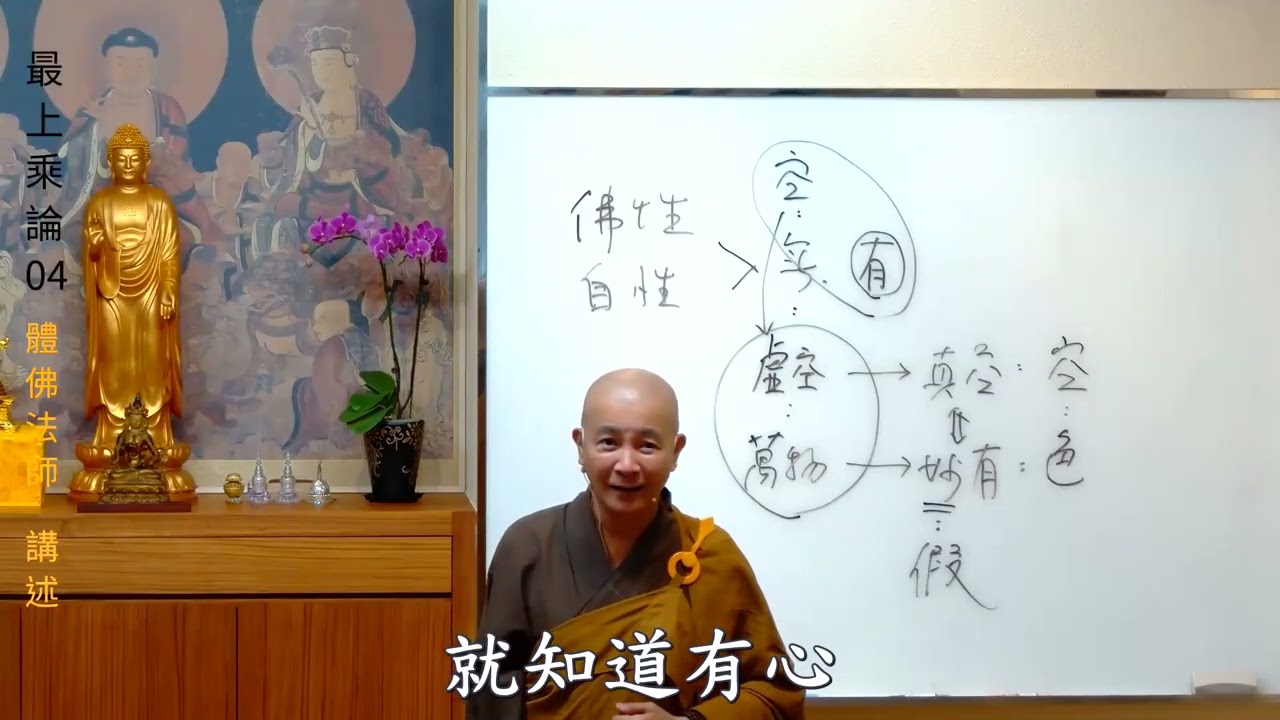 最上乘論04 體佛法師 講述
佛性
自性
空:
無 有
:
虛空 → 真空:空
:
萬物 → 妙有:色
假
就知道有心